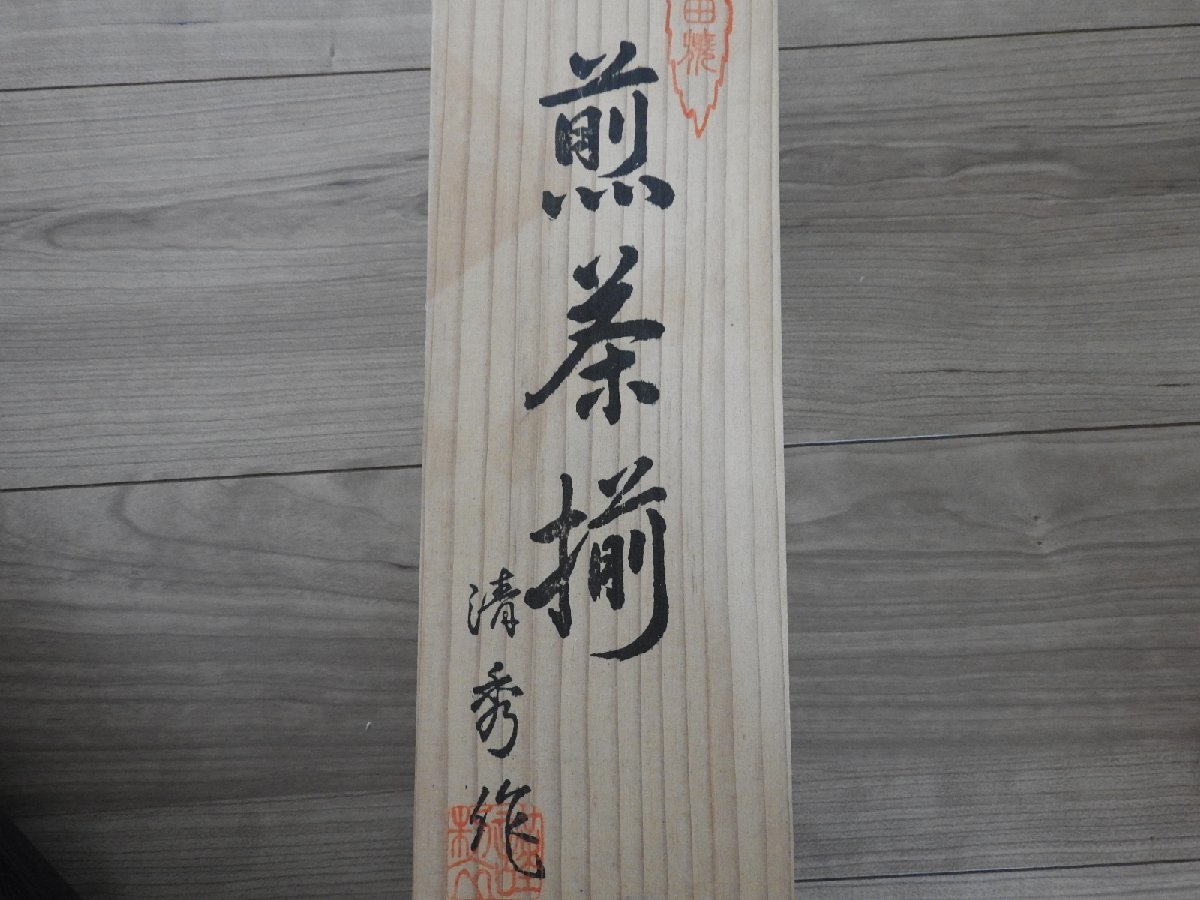 田焼
煎茶揃
清秀作